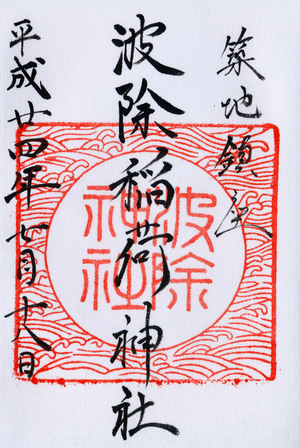 築地鎮座
波除稲荷神社
波除神社
平成廿四年七月十八日